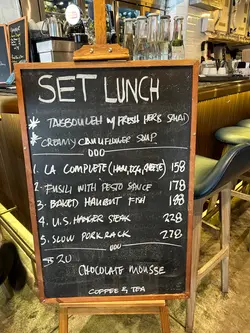 SET LUNCH
* TABBOULEH W/ FRESH HERB SALAD
* CREAMY CAULIFLOWER SOUP
000
1. LA COMPLETE (HAM, EGG, CHEESE) 158
2. FUSILLI WITH PESTO SAUCE 178
3. BAKED HALIBUT FISH 198
4. U.S. HANGER STEAK 228
5. SLOW PORK RACK 228
000
20
CHOCOLATE MOUSSE
COFFEE & TEA